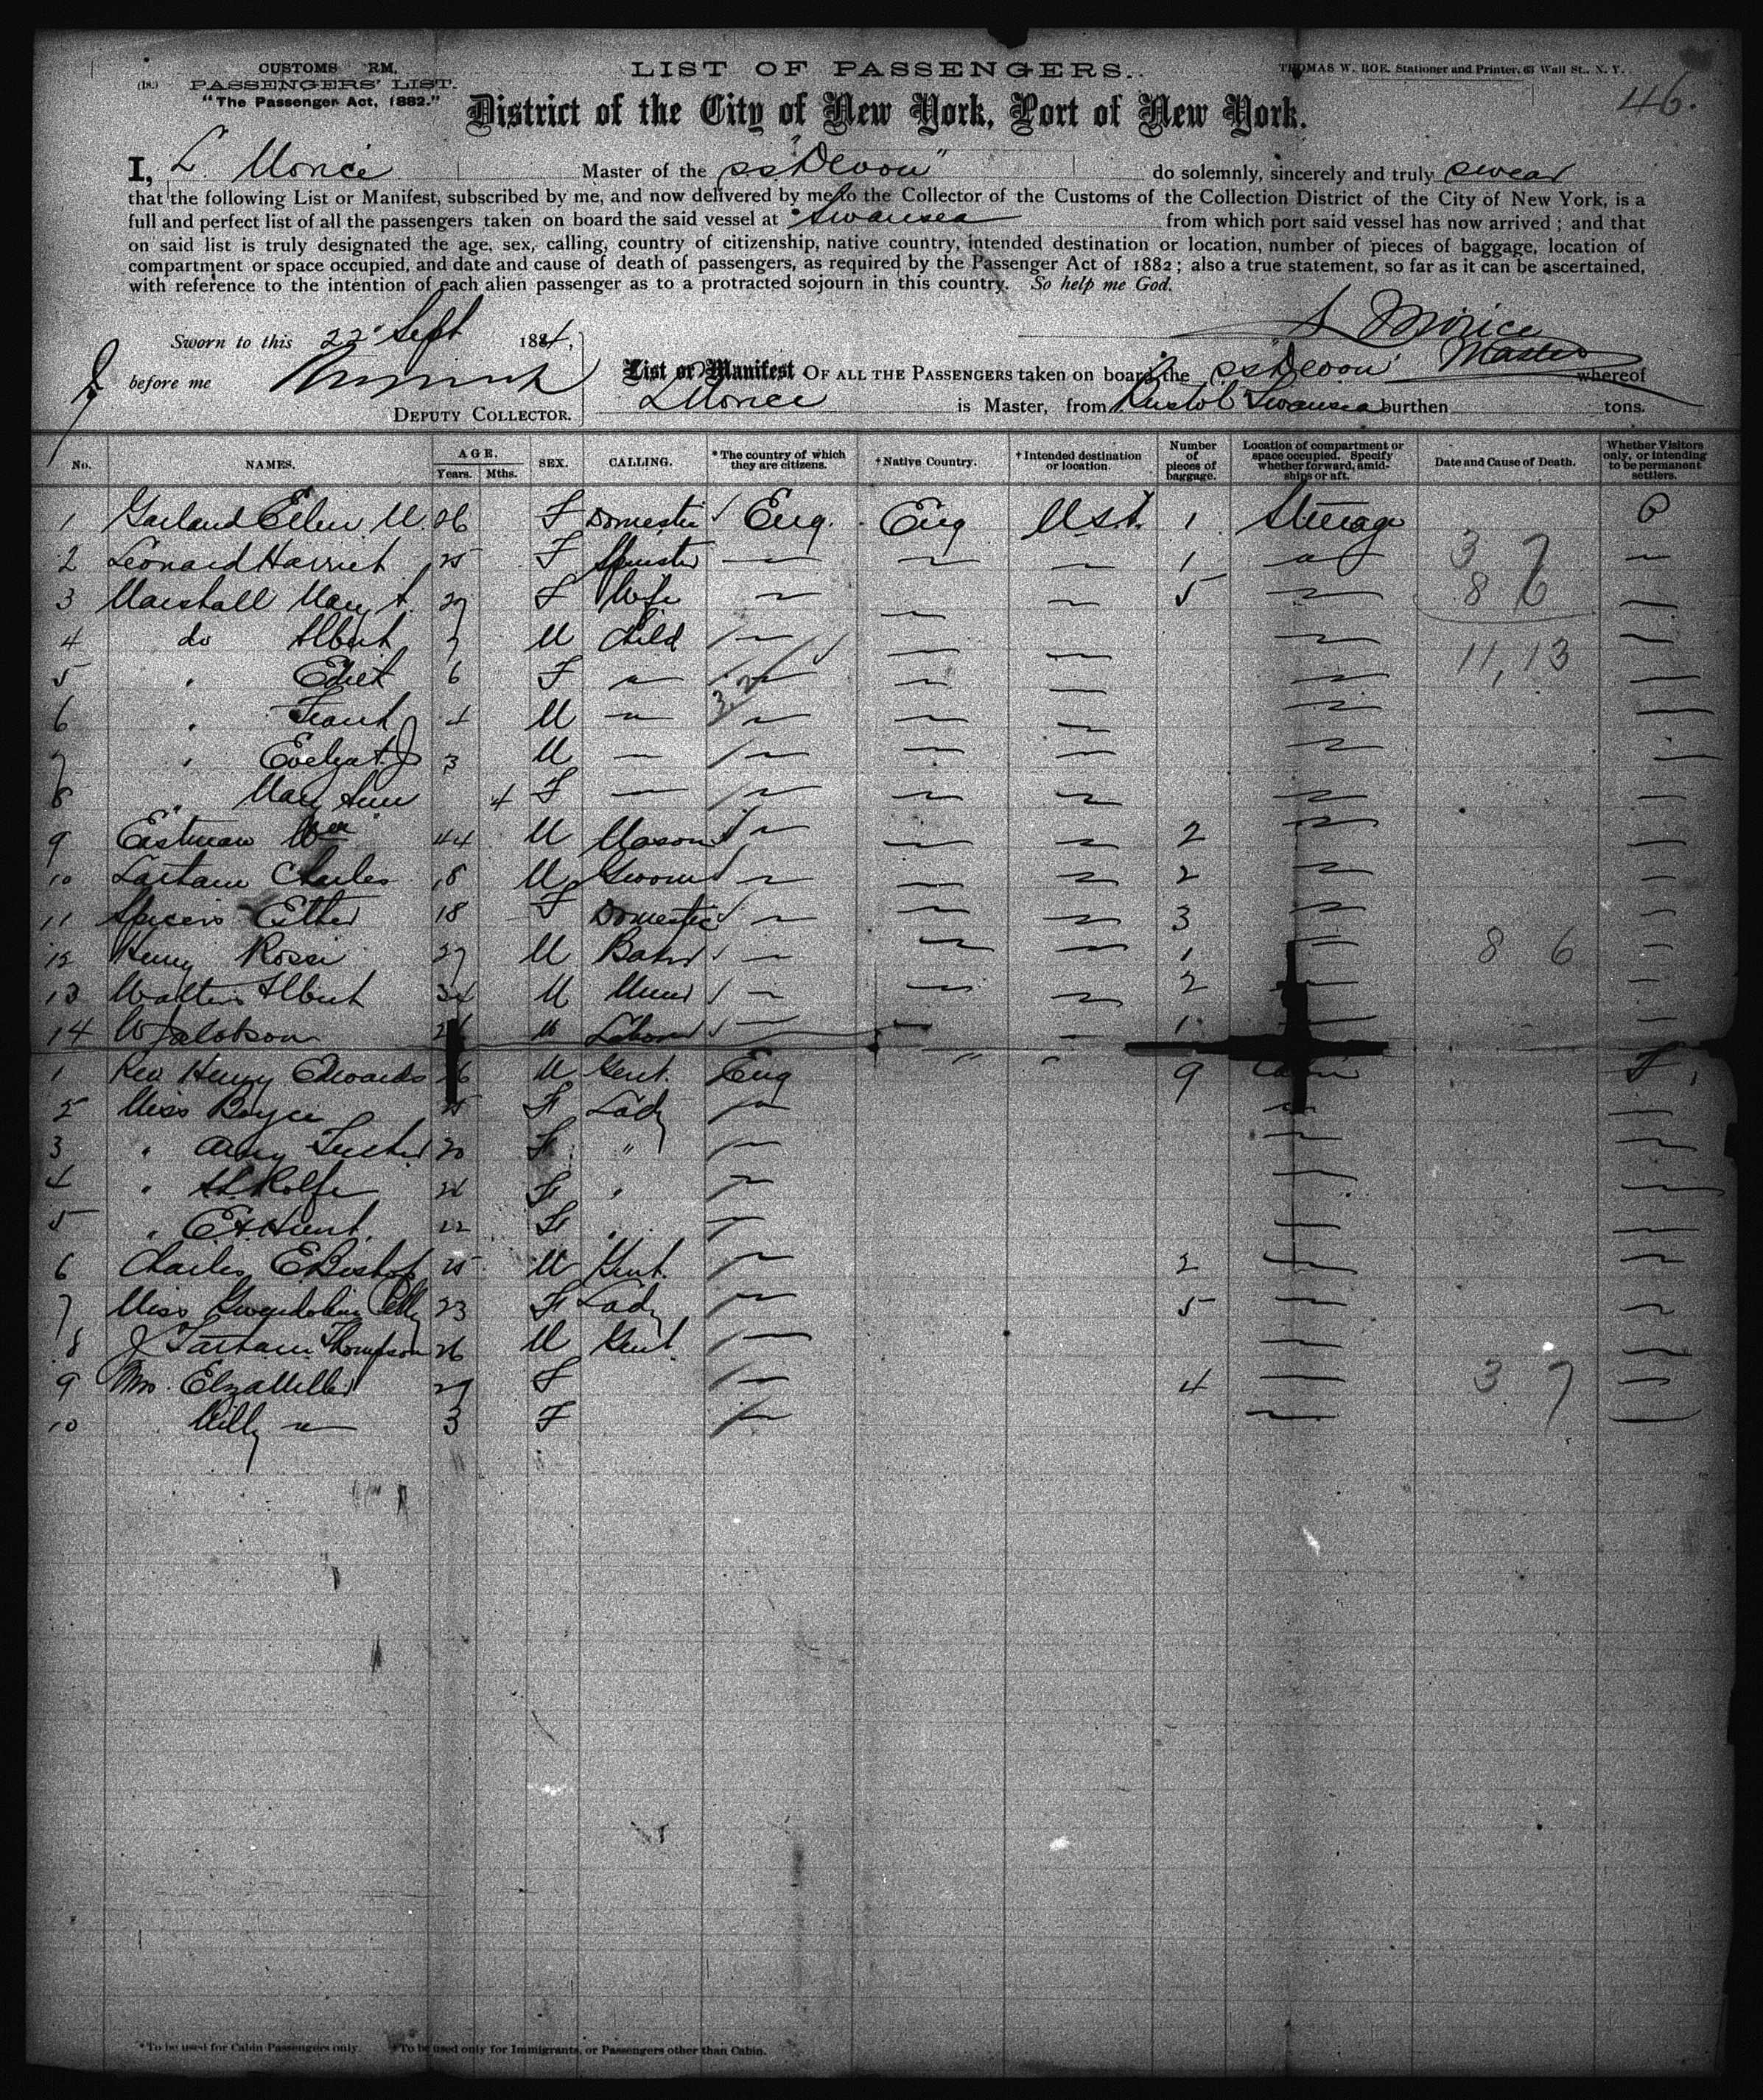 CUSTOMS RM,
(18.) PASSENGERS' LIST.
"The Passenger Act, 1882."
LIST OF PASSENGERS.
THOMAS W. ROE, Stationer and Printer, 63 Wall St., N. Y.
46.
District of the City of New York, Port of New York.
I, L. Morice Master of the ss "Devon" do solemnly, sincerely and truly swear
that the following List or Manifest, subscribed by me, and now delivered by me to the Collector of the Customs of the Collection District of the City of New York, is a
full and perfect list of all the passengers taken on board the said vessel at Swansea from which port said vessel has now arrived; and that
on said list is truly designated the age, sex, calling, country of citizenship, native country, intended destination or location, number of pieces of baggage, location of
compartment or space occupied, and date and cause of death of passengers, as required by the Passenger Act of 1882; also a true statement, so far as it can be ascertained,
with reference to the intention of each alien passenger as to a protracted sojourn in this country. So help me God.
Sworn to this 22 Sept 1884,
Morice
Master
before me
DEPUTY COLLECTOR.
List or Manifest OF ALL THE PASSENGERS taken on board the ss "Devon" whereof
L Morice is Master, from Bristol Swansea burthen tons.
No. NAMES. AGE. Years. Mths. SEX. CALLING. *The country of which they are citizens. †Native Country. †Intended destination or location. Number of pieces of baggage. Location of compartment or space occupied. Specify whether forward, amidships or aft. Date and Cause of Death. Whether Visitors only, or intending to be permanent settlers.
1 Garland Ellen M. 26 F Domestic Eng. Eng 1 Steerage P
2 Leonard Harriet 25 F Spinster — — — 1 — 3 7 —
3 Marshall Mary A. 29 F Wife — — — 5 — 8 6 —
4 do Albert 7 M Child — — — — 11, 13 —
5 " 6 F — — — — — —
6 " Frank 4 M — — — — — —
7 " 3 M — — — — — —
8 " Mary Ann 4 F — — — — — —
9 Eastman Wm 44 M Mason — — — 2 — —
10 Latham Charles 18 M Groom — — — 2 — —
11 Esther 18 F Domestic — — — 3 — —
12 Henry Rosser 27 M — — — 1 — 8 6 —
13 Walters Albert 34 M Miner — — — 2 — —
14 W Jacobson M Labor — — — 1 — —
1 Rev Henry Edwards M Gent. Eng " " 9 Cabin
2 Miss Boyce 25 F Lady — — —
3 " Amy 20 F " — — —
4 " Rolfe 24 F " — — —
5 " Hunt. 22 F " — — —
6 Charles E Bishop 25 M Gent. — 2 — —
7 Miss Gwendoline 23 F Lady — 5 — —
8 J Tatham Thompson 26 M Gent — — —
9 Mrs. Eliza Miller 29 F — 4 — 3 7 —
10 Milly — 3 F — — —
*To be used for Cabin Passengers only. †To be used only for Immigrants, or Passengers other than Cabin.